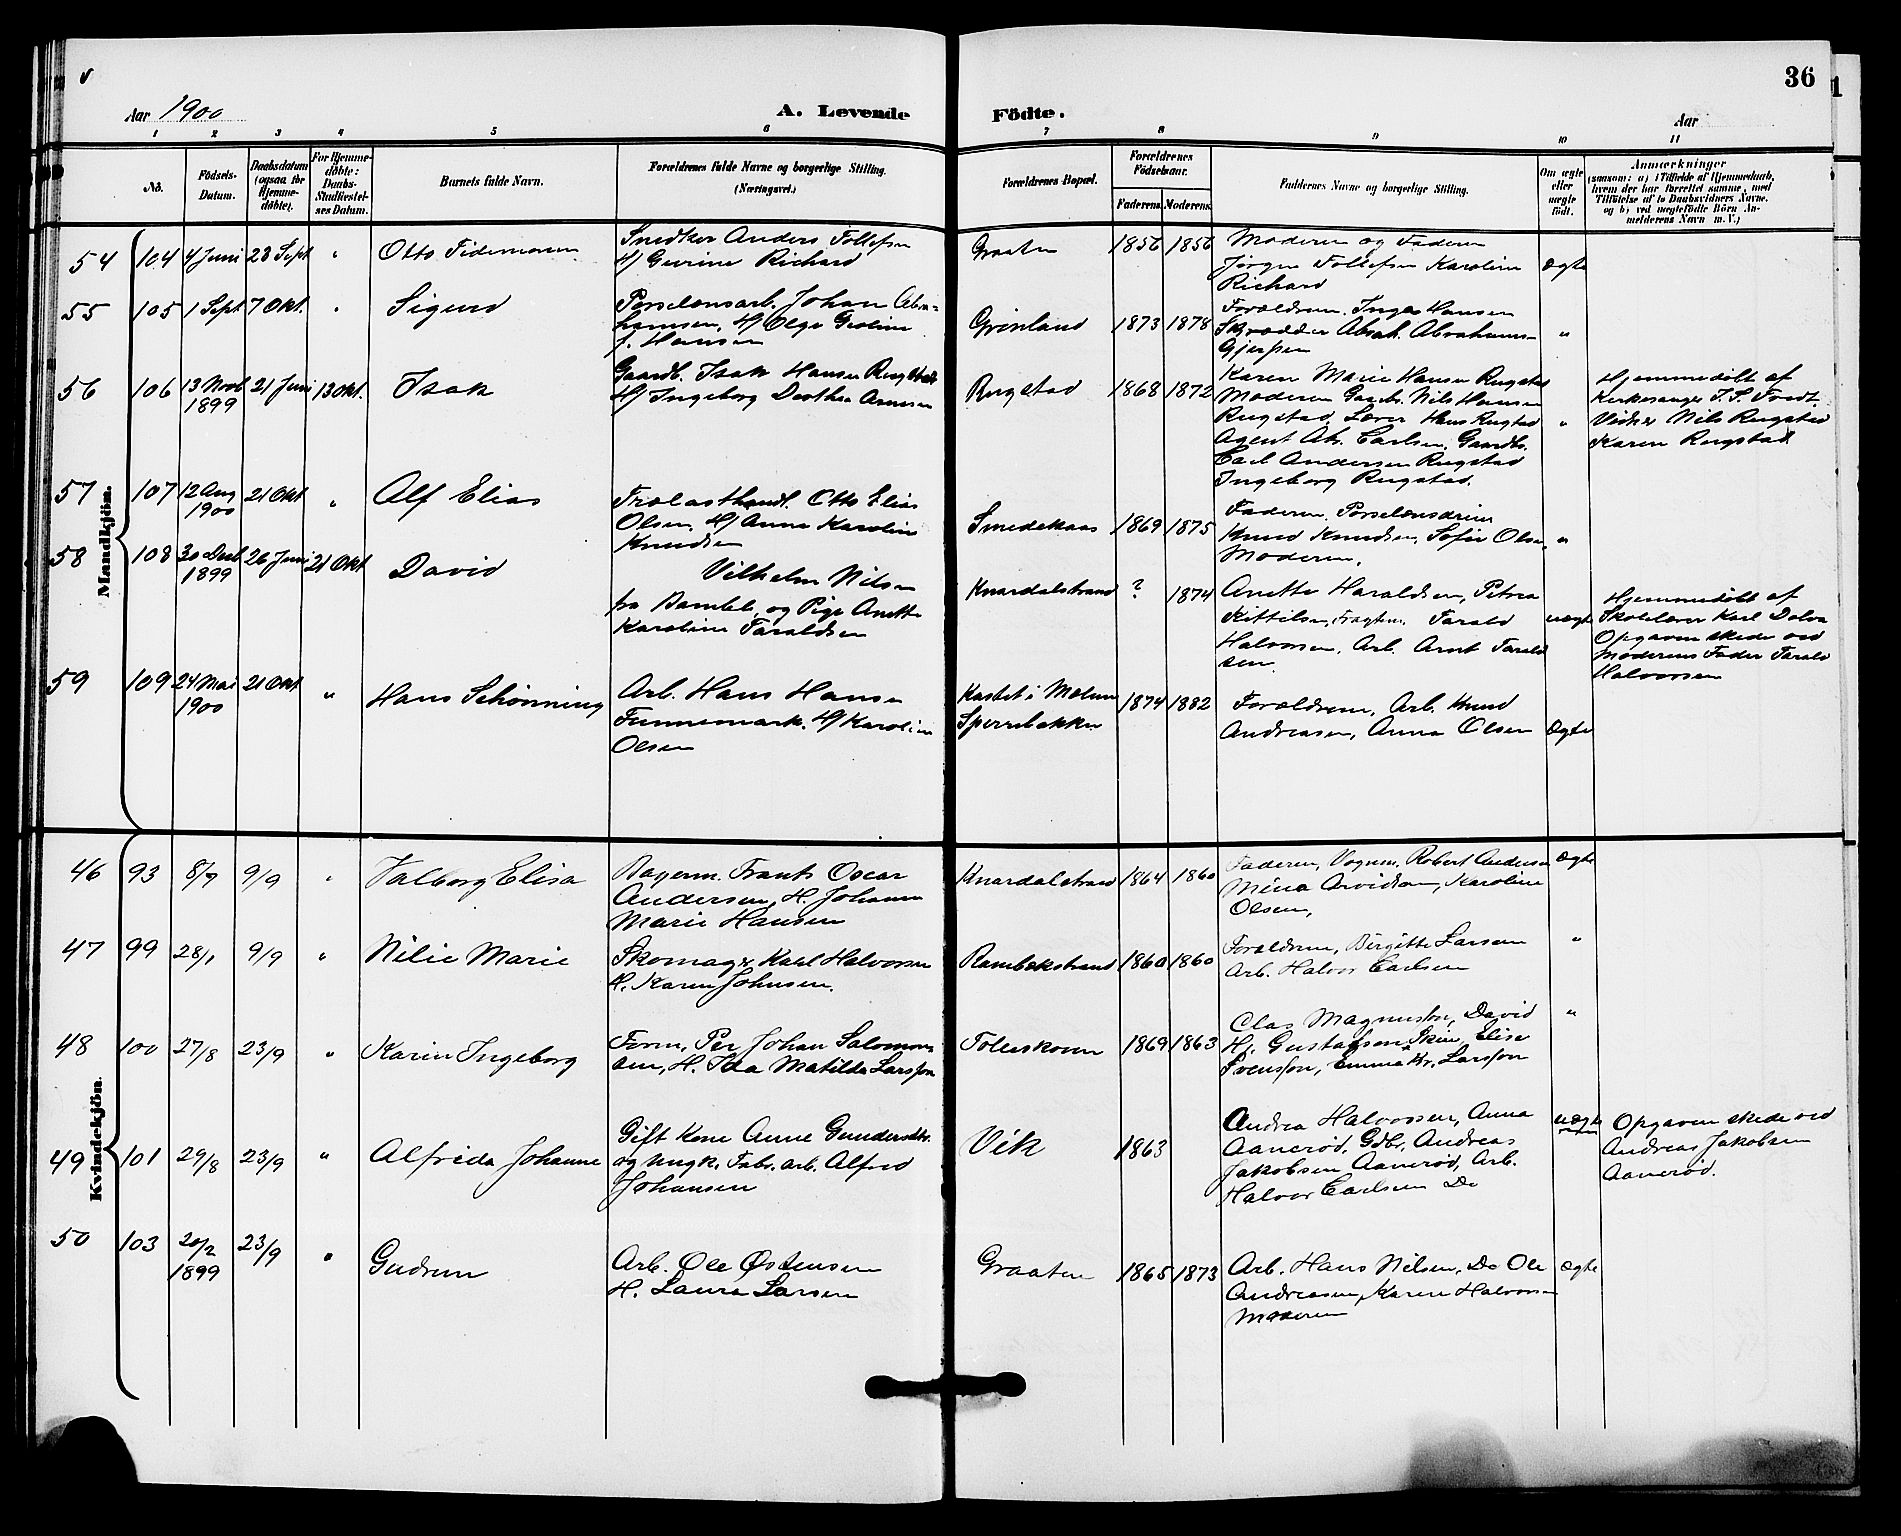 36
Aar 1900
A. Levende Födte.
Aar
1 2 3 4 5 6 7 8 9 10 11
Nö.
Födsels-Datum.
Daabsdatum (ogsaa for Hjemme-döbte).
For Hjemme-döbte: Daabs-Stadfæstel-ses Datum.
Barnets fulde Navn.
Forældrenes fulde Navne og borgerlige Stilling. (Næringsvei.)
Forældrenes Bopæl.
Forældrenes Födselsaar.
Faderens. Moderens.
Faddernes Navne og borgerlige Stilling.
Om ægte eller uægte födt.
Anmærkninger
(saasom: a) i Tilfælde af Hjemmedaab,
hvem der har forrettet samme, med
Tilföielse af to Daabsvidners Navne.
og b) ved uægtefödte Börn An-
melderens Navn m. V.)
Mandkjön.
54 104 4 Juni 23 Sept " Otto Tidemann
Snedker Anders Tollefsen
H/ Gurine Richard
Graaten 1856 1856
Moderen og Faderen
Jørgen Tollefsen Karoline
Richard
Ægte
55 105 1 Sept 7 Okt. " Sigurd
Porselensarb. Johan Abra-
hamsen, H/ Olga Geoline
f. Hansen
Grinland 1873 1878
Forældrene. Inga Hansen
Skrædder Abrah. Abrahams-
Gjerpen
"
56 106 13 Novb 1899 21 Juni 13 Okt. Isak
Gaardb. Isak Hansen Rugstad
H/ Ingeborg Dorthea Arnesen
Rugstad 1868 1872
Karen Marie Hansen Rugstad
Moderen Gaardb. Nils Hansen
Rugstad, Lærer Hans Rugstad
Agent Ab. Carlsen, Gaardb.
Carl Andersen Rugstad
Ingeborg Rugstad.
"
Hjemmedøbt af
Kirkesanger T. S.
Vidner Nils Rugstad
Karen Rugstad
57 107 12 Aug 1900 21 Okt " Alf Elias
Trælasthandl. Otto Elias
Olsen, H/ Anna Karoline
Knudsen
Smedekaas 1869 1875
Faderen. Porselensdreier
Knud Knudsen, Sofie Olsen,
Moderen.
"
58 108 30 Decb 1899 26 Juni 21 Okt David
Vilhelm Nilsen
fra Bamble, og Pige Anette
Karoline Taraldsen
Knardalstrand ? 1874
Anette Haraldsen, Petrea
Kittilsen, Fragtem. Tarald
Halvorsen, Arb. Arnt Tarald
sen.
uægte
Hjemmedøbt af
Skolelærer Karl Dolva
Opgaven skede ved
Moderens Fader Tarald
Halvorsen
59 109 24 Mai 1900 21 Okt " Hans Schønning
Arb. Hans Hansen
Funnemark. H/ Karoline
Olsen
Kastet i Melum
Sperrebakken
1874 1882
Forældrene, Arb. Knud
Andreasen, Anna Olsen
Ægte
Kvindekjön.
46 93 8/7 9/9 " Valborg Elisa
Bagerm. Frants Oscar
Andersen, H. Johanne
Marie Hansen
Knardalstrand 1864 1860
Faderen, Vognm. Robert Andersen
Mina Arvidsen, Karoline
Olsen,
Ægte
47 99 28/1 9/9 " Nilie Marie
Skomager Karl Halvorsen
H. Karen Johnsen.
Rambekstrand 1860 1860
Forældrene, Birgitte Larsen
Arb. Halvor Carlsen
"
48 100 27/8 23/9 " Karin Ingeborg
Form, Per Johan Salomons
sen, H. Ida Matilda Larsson
Tolleskoven 1869 1863
Clas Magnusson, David
Hj. Gustafsen, Skien, Elise
Svensson, Emma Kr. Larsson
"
49 101 29/8 23/9 " Alfrida Johanne
Gift Kone Anne Gundersdtr.
og ungk. Fabr. arb. Alfred
Johansen
Vik 1863
Andrea Halvorsen, Anna
Aanerød, Gdbr. Andreas
Jakobsen Aanerød, Arb.
Halvor Carlsen Do
uægte
Opgaven skede ved
Andreas Jakobsen
Aanerød.
50 103 20/2 1899 23/9 " Gudrun
Arb. Ole Østensen
H. Laura Larsen
Graaten 1865 1873
Arb. Hans Nilsen, Do Ole
Andreasen, Karen Halvorsen
Moderen
Ægte